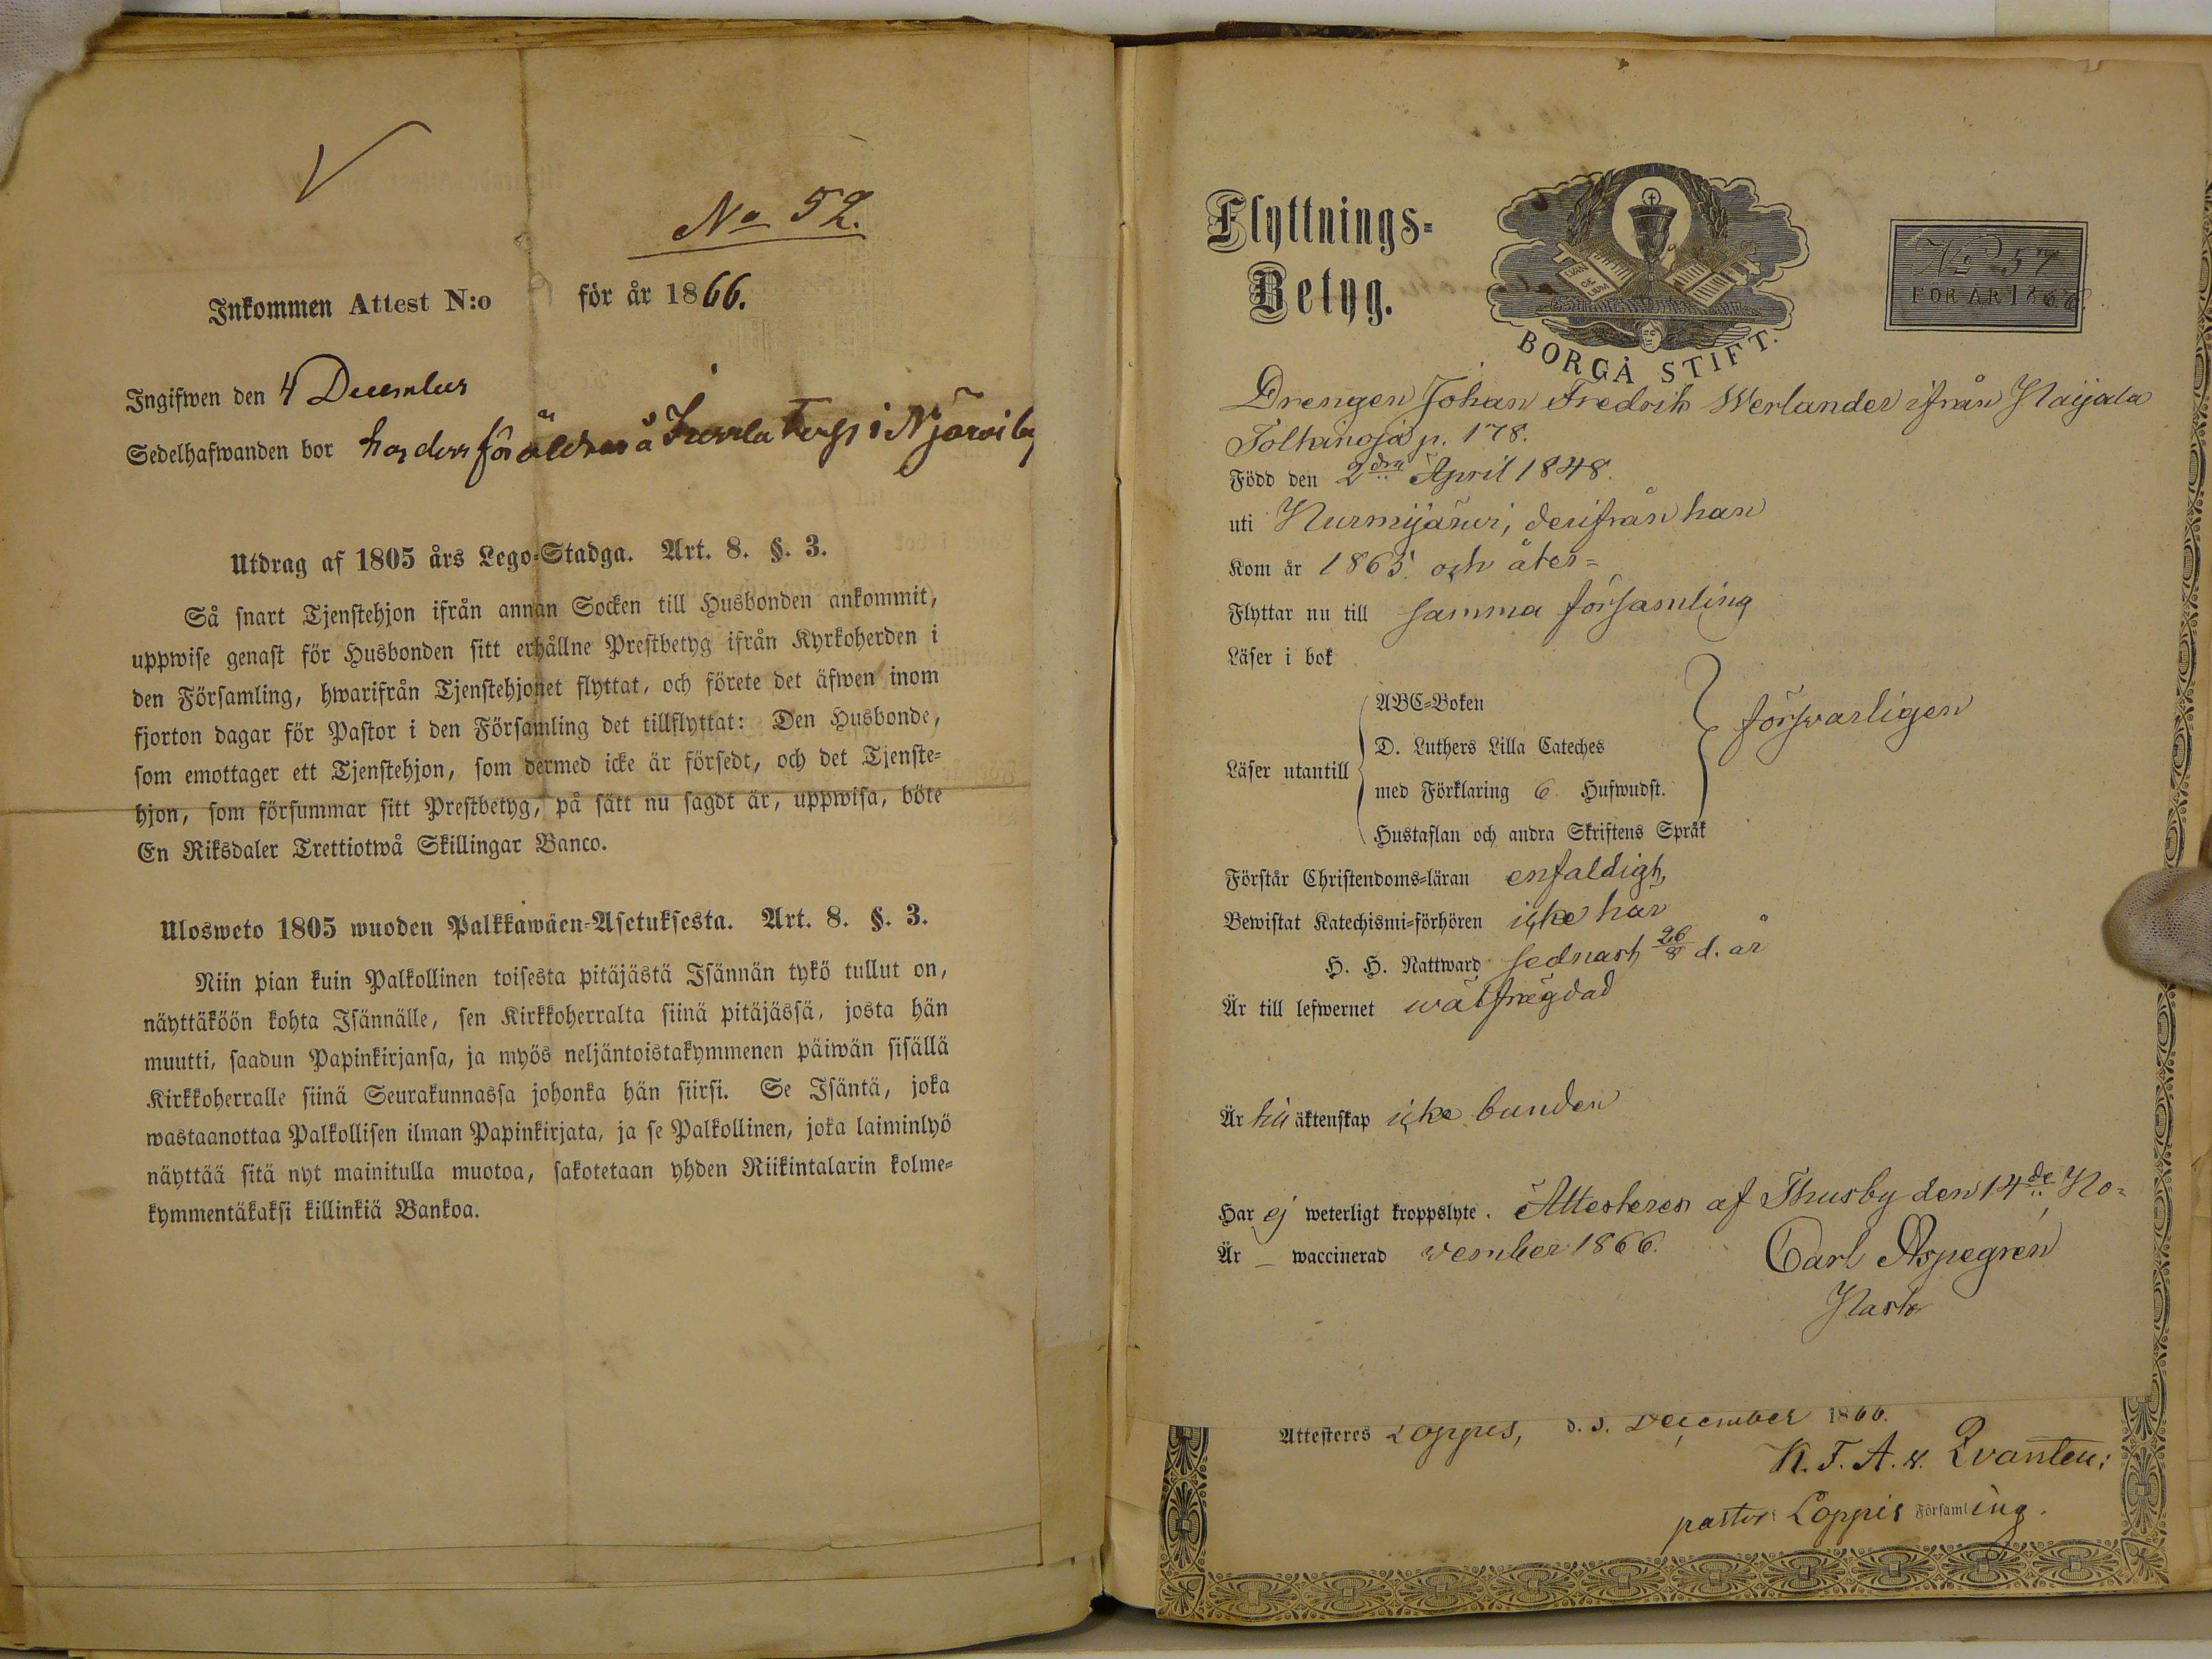 No 52.
Inkommen Attest N:o för år 1866.
Ingifwen den 4 December
Sedelhafwanden bor hos dess föräldrar å torp i N järvi by
Utdrag af 1805 års Lego-Stadga. Art. 8. §. 3.
Så snart Tjenstehjon ifrån annan Socken till Husbonden ankommit,
uppwise genast för Husbonden sitt erhållne Prestbetyg ifrån Kyrkoherden i
den Församling, hwarifrån Tjenstehjonet flyttat, och förete det äfwen inom
fjorton dagar för Pastor i den Församling det tillflyttat: Den Husbonde,
som emottager ett Tjenstehjon, som dermed icke är försedt, och det Tjenste=
hjon, som försummar sitt Prestbetyg, på sätt nu sagdt är, uppwisa, böte
En Riksdaler Trettiotwå Skillingar Banco.
Ulosweto 1805 wuoden Palkkawäen-Asetuksesta. Art. 8. §. 3.
Niin pian kuin Palkollinen toisesta pitäjästä Isännän tykö tullut on,
näyttäköön kohta Isännälle, sen Kirkkoherralta siinä pitäjässä, josta hän
muutti, saadun Papinkirjansa, ja myös neljäntoistakymmenen päiwän sisällä
Kirkkoherralle siinä Seurakunnassa johonka hän siirsi. Se Isäntä, joka
wastaanottaa Palkollisen ilman Papinkirjata, ja se Palkollinen, joka laiminlyö
näyttää sitä nyt mainitulla muotoa, sakotetaan yhden Riikintalarin kolme=
kymmentäkaksi killinkiä Bankoa.
Flyttnings=
Betyg.
EVAN
GE
LIUM
BORGÅ STIFT.
No 57
FÖR ÅR 1866.
Drengen Johan Fredrik Werlander ifrån Paijala
Tolkinoja p. 178.
Född den 2dra April 1848.
uti Nurmijärwi, derifrån han
Kom år 1865. och åter=
Flyttar nu till samma församling
Läser i bok
ABC=Boken
D. Luthers Lilla Cateches
Läser utantill
med Förklaring 6 Hufwudst.
Hustaflan och andra Skriftens Språk
försvarligen
Förstår Christendoms=läran enfaldigt,
Bewistat Katechismi=förhören icke har
H. H. Nattward sednast 26/8 d. år
Är till lefwernet wälfrägdad
Är till äktenskap icke bunden
Har ej weterligt kroppslyte. Attesteres af Thusby den 14de No=
Är — waccinerad vember 1866.
Carl Aspegren
Past:
Attesteres Loppis, d. 3. December 1866.
K. F. A. v. Qvanten;
pastor i Loppis Församling.